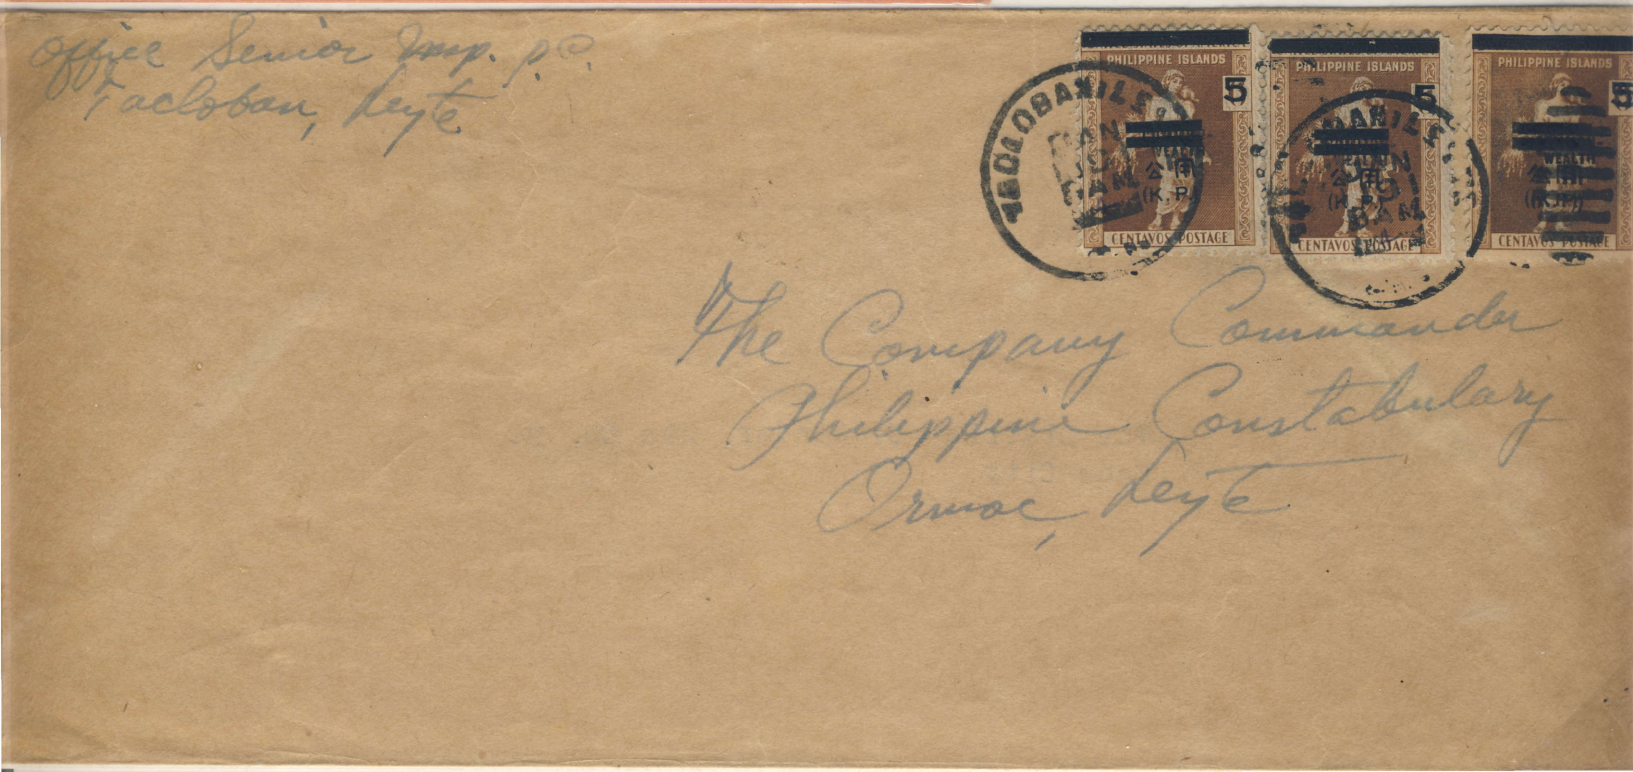 Office Senior Insp. P.C.
Tacloban, Leyte
PHILIPPINE ISLANDS
5
公用
(K.P.)
CENTAVOS POSTAGE
PHILIPPINE ISLANDS
5
公用
(K.P.)
CENTAVOS POSTAGE
PHILIPPINE ISLANDS
5
WEALTH
(K.P.)
CENTAVOS POSTAGE
TACLOBAN
JAN
The Company Commander
Philippine Constabulary
Ormoc, Leyte